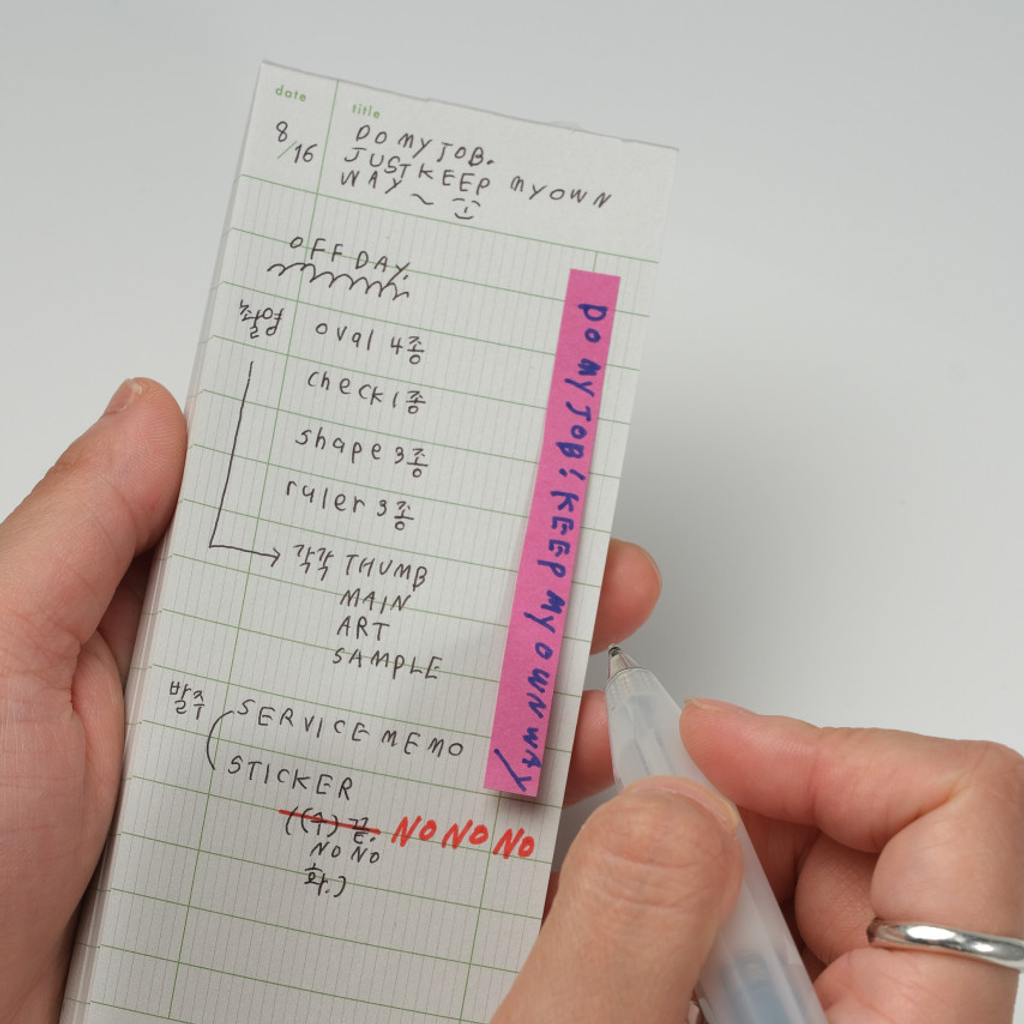 date
title
8/16
DO MY JOB.
JUST KEEP MY OWN
WAY ~
OFF DAY.
촬영 oval 4종
check 1종
shape 3종
ruler 3종
각각 THUMB
MAIN
ART
SAMPLE
발주 SERVICE MEMO
STICKER
((수) 끝. NO NO NO
NO NO
화.)
DO MY JOB! KEEP MY OWN WAY